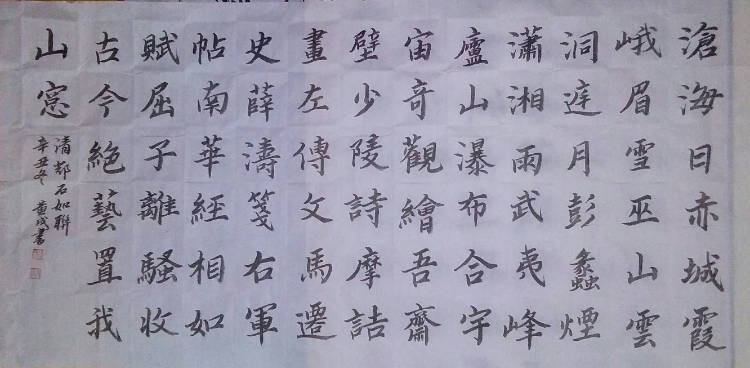 滄海日赤城霞
峨眉雪巫山雲
洞庭月彭蠡煙
瀟湘雨武夷峰
廬山瀑布合宇
宙奇觀繪吾齋
壁少陵詩摩詰
畫左傳文馬遷
史薛濤箋右軍
帖南華經相如
賦屈子離騷收
古今絕藝置我
山窓
清鄧石如聯
辛丑冬 黄成書